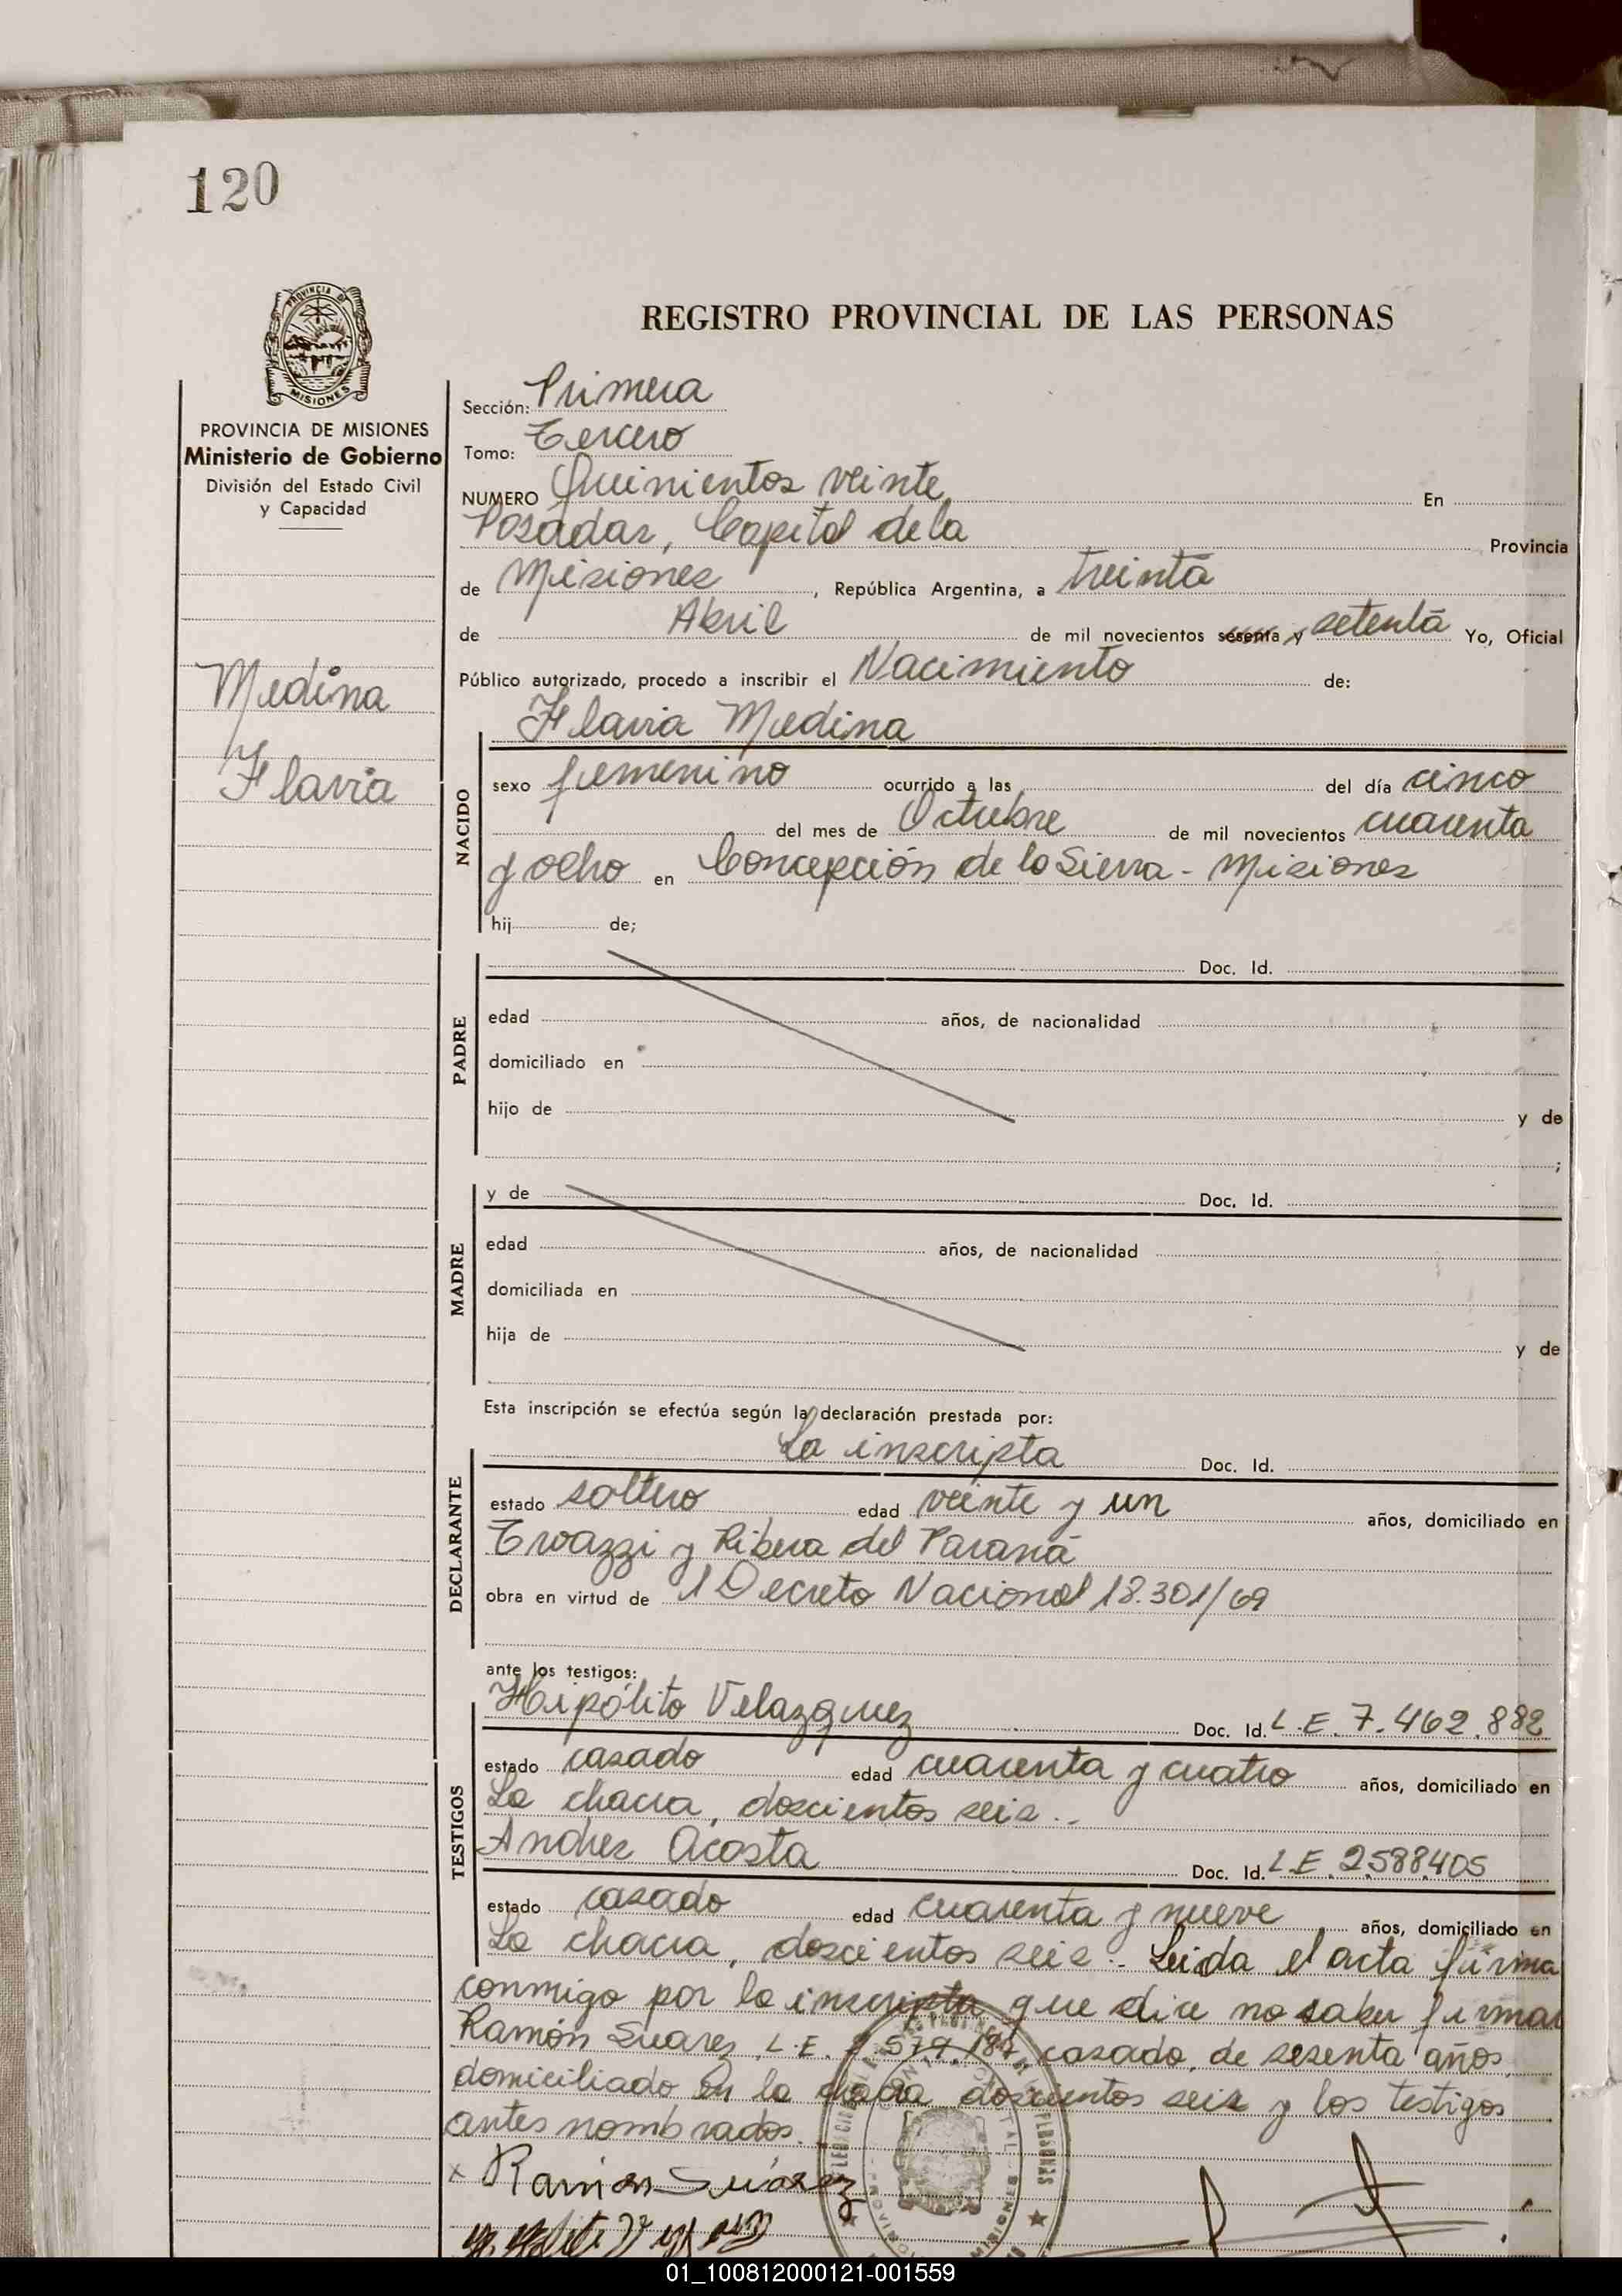 120
PROVINCIA DE
MISIONES
PROVINCIA DE MISIONES
Ministerio de Gobierno
División del Estado Civil
y Capacidad
Medina
Flavia
REGISTRO PROVINCIAL DE LAS PERSONAS
Sección: Primera
Tomo: Tercero
NUMERO Quinientos veinte En
Posadas, Capital de la Provincia
de Misiones, República Argentina, a treinta
de Abril de mil novecientos sesenta y setenta Yo, Oficial
Público autorizado, procedo a inscribir el Nacimiento de:
Flavia Medina
NACIDO
sexo femenino ocurrido a las del día cinco
del mes de Octubre de mil novecientos cuarenta
y ocho en Concepción de la Sierra - Misiones
hij de;
PADRE
Doc. Id.
edad años, de nacionalidad
domiciliado en
hijo de y de
;
MADRE
y de Doc. Id.
edad años, de nacionalidad
domiciliada en
hija de y de
Esta inscripción se efectúa según la declaración prestada por:
DECLARANTE
La inscripta Doc. Id.
estado soltero edad veinte y un años, domiciliado en
Troazzi y Ribera del Paraná
obra en virtud de l Decreto Nacional 18.301/69
ante los testigos:
TESTIGOS
Hipólito Velazquez Doc. Id. L.E. 7.462.882
estado casado edad cuarenta y cuatro años, domiciliado en
La chacra, doscientos seis.-
Andres Acosta Doc. Id. L.E. 2588405
estado casado edad cuarenta y nueve años, domiciliado en
La chacra, doscientos seis.- Leida el acta firma
conmigo por la inscripta que dice no saber firmar
Ramón Suares L.E. 579.187 casado, de sesenta años
domiciliado en la chacra doscientos seis y los testigos
antes nombrados.
x Ramon Suarez
01_100812000121-001559